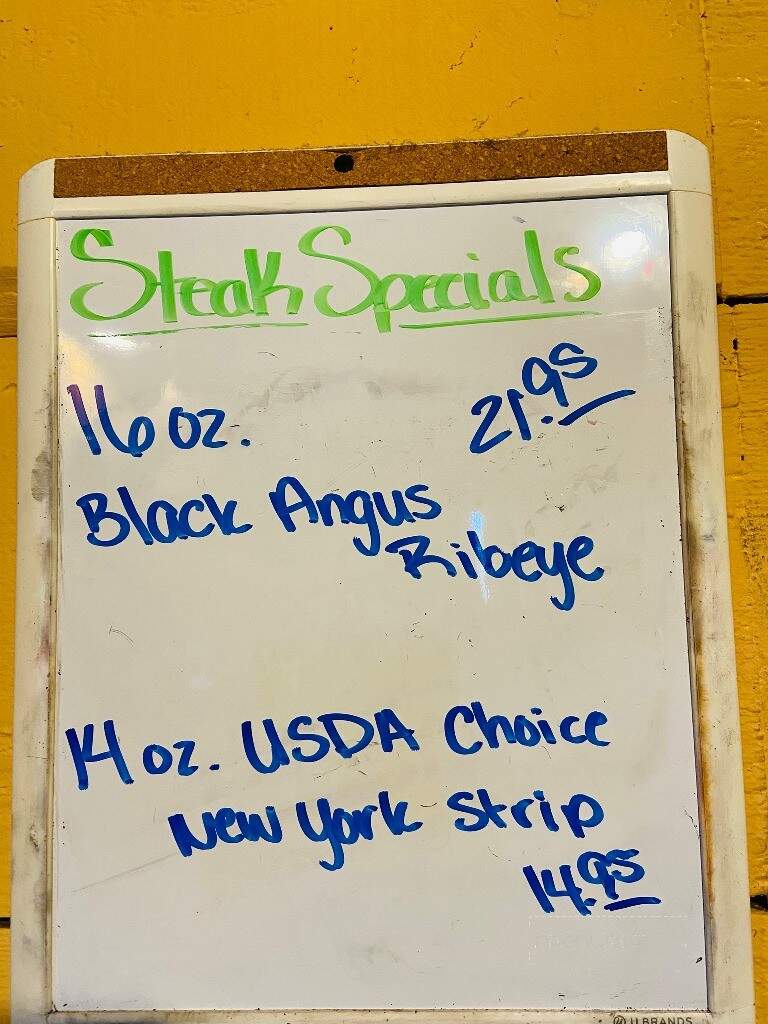 Steak Specials
16 oz. 21.95
Black Angus
Ribeye
14 oz. USDA Choice
New York Strip
14.95
U BRANDS